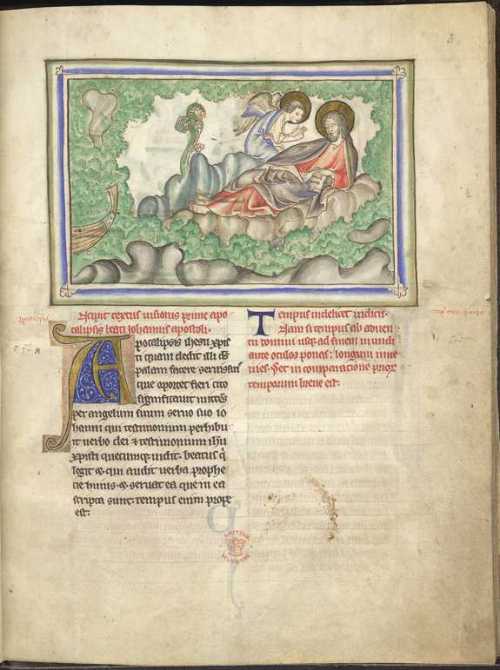 Incipit textus visionis prime apo
calipsis beati iohannis apostoli.
Apocalipsis ihesu xpisti
quam dedit illi deus
palam facere servis suis
que oportet fieri cito
significavit mittens
per angelum suum servo suo io
hanni qui testimonium perhibu
it verbo dei & testimonium ihu
xpisti quecumque vidit. beatus q
legit & qui audit verba prophe
tie huius & servat ea que in ea
scripta sunt. tempus enim prope
est.
Tempus videlicet iudicii.
Nam si tempus ab adven
tu domini usque ad finem mundi
ante oculos ponas: longum inve
nies. Set in comparatione prior
temporum breve est.